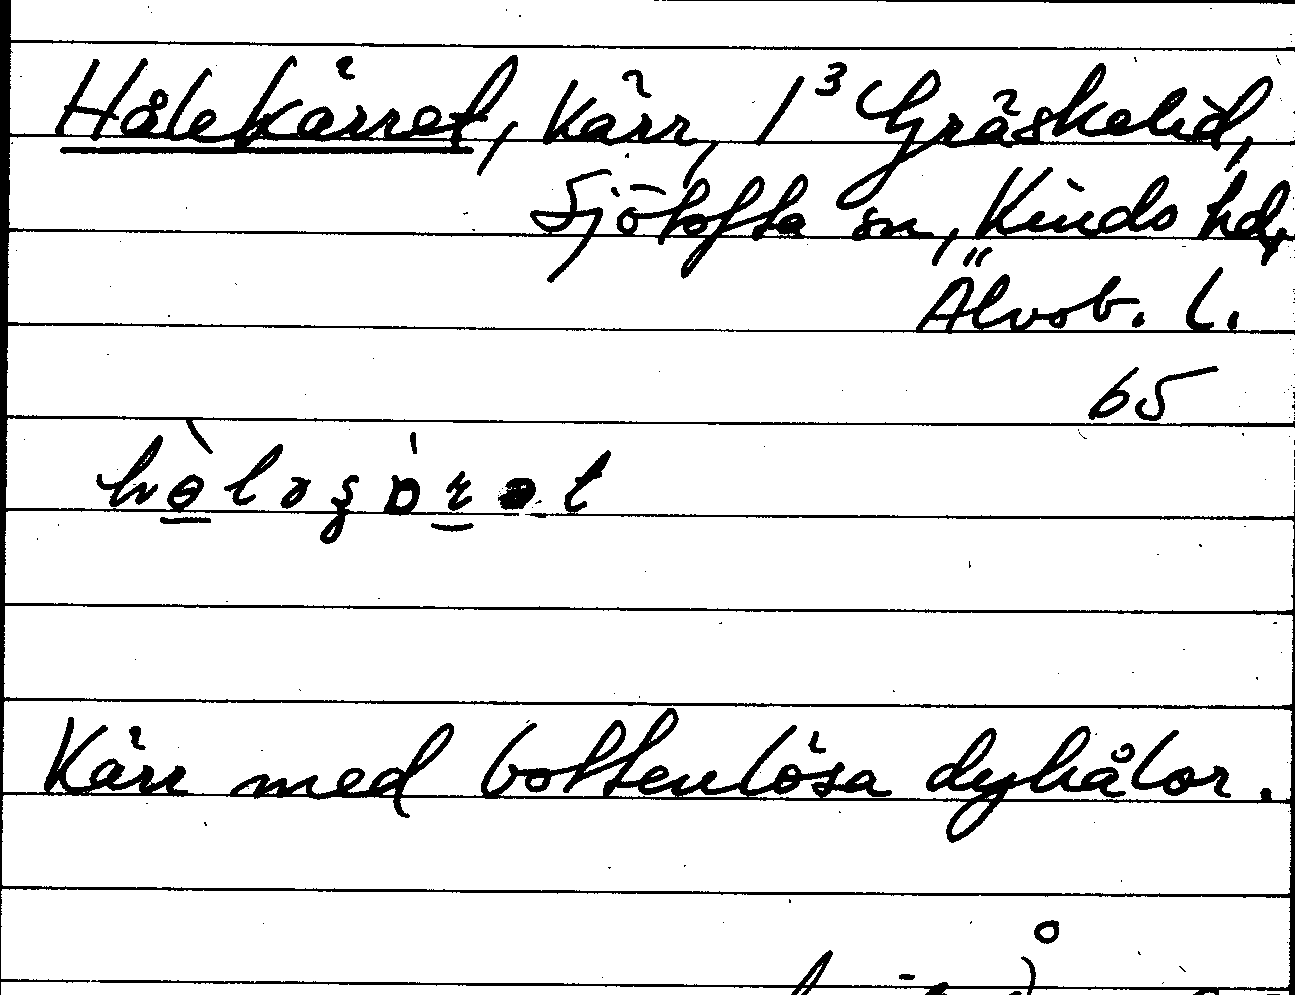 Hålekärret, kärr, 1³ Gräskelid,
Sjötofta sn, Kinds hd,
Älvsb. l.
65
Kärr med bottenlösa dyhålor.